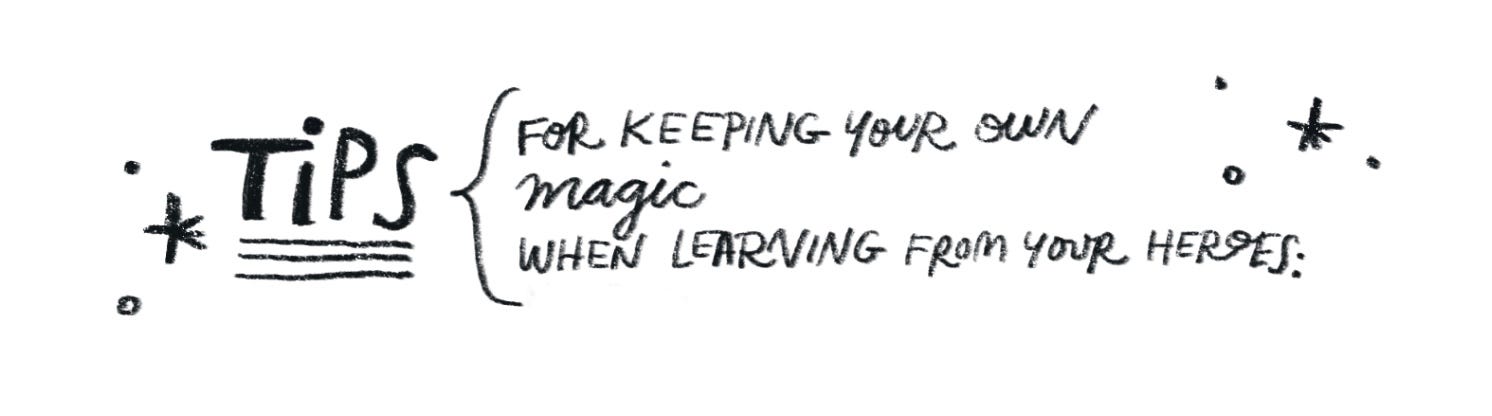 TiPS
FOR KEEPING YOUR OWN
magic
WHEN LEARNING FROM YOUR HEROES: